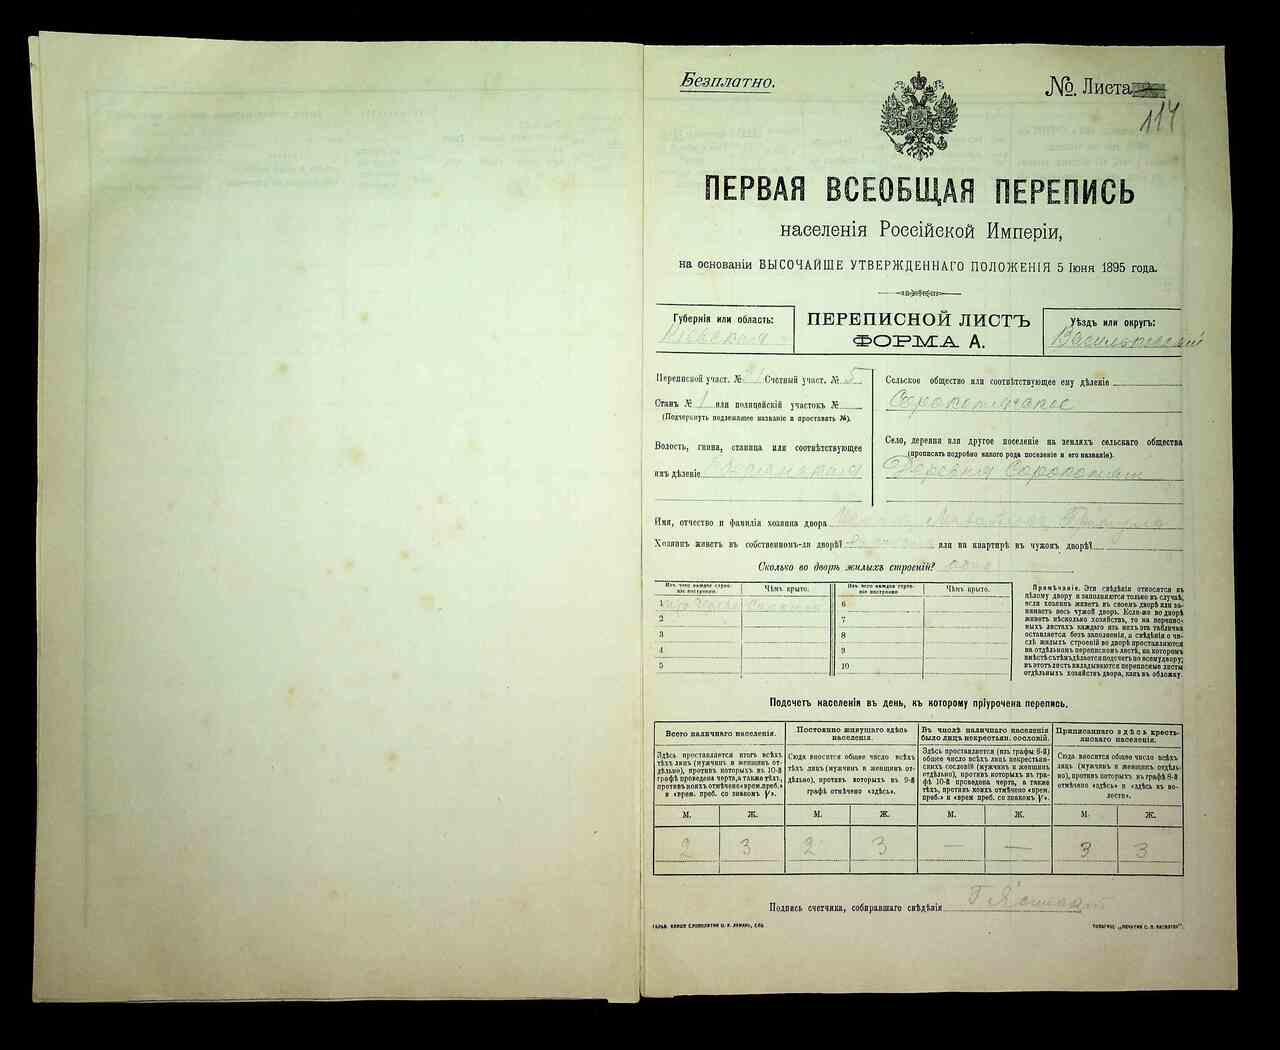 Безплатно.
№. Листа
114
ПЕРВАЯ ВСЕОБЩАЯ ПЕРЕПИСЬ
населенія Россійской Имперіи,
на основаніи ВЫСОЧАЙШЕ УТВЕРЖДЕННАГО ПОЛОЖЕНІЯ 5 Іюня 1895 года.
Губернія или область:
Кіевская
ПЕРЕПИСНОЙ ЛИСТЪ
ФОРМА А.
Уѣздъ или округъ:
Васильковскій
Переписной участ. № Счетный участ. № 5
Станъ № 1 или полицейскій участокъ №
(Подчеркнуть подлежащее названіе и проставить №).
Волость, гмина, станица или соотвѣтствующее
имъ дѣленіе
Сельское общество или соотвѣтствующее ему дѣленіе
Сорокотяжское
Село, деревня или другое поселеніе на земляхъ сельскаго общества
(прописать подробно какого рода поселеніе и его названіе).
Деревня Сорокотяги
Имя, отчество и фамилія хозяина двора
Хозяинъ живетъ въ собственномъ-ли дворѣ? или на квартирѣ въ чужомъ дворѣ?
Сколько во дворѣ жилыхъ строеній? одно
Изъ чего каждое строе-
ніе построено
Чѣмъ крыто.
Изъ чего каждое строе-
ніе построено
Чѣмъ крыто.
1 6
2 7
3 8
4 9
5 10
Примѣчаніе. Эти свѣдѣнія относятся къ
цѣлому двору и заполняются только въ случаѣ,
если хозяинъ живетъ въ своемъ дворѣ или за-
нимаетъ весь чужой дворъ. Если-же во дворѣ
живетъ нѣсколько хозяйствъ, то на перепис-
ныхъ листахъ каждаго изъ нихъ эта табличка
оставляется безъ заполненія, а свѣдѣнія о чи-
слѣ жилыхъ строеній во дворѣ проставляются
на отдѣльномъ переписномъ листѣ, на которомъ
вмѣстѣ съ тѣмъ дѣлается подсчетъ по всему двору;
въ этотъ листъ вкладываются переписные листы
отдѣльныхъ хозяйствъ двора, какъ въ обложку.
Подсчетъ населенія въ день, къ которому пріурочена перепись.
Всего наличнаго населенія.
Здѣсь проставляется итогъ всѣхъ
тѣхъ лицъ (мужчинъ и женщинъ от-
дѣльно), противъ которыхъ въ 10-й
графѣ проведена черта, а также тѣхъ,
противъ коихъ отмѣчено «врем. преб.»
и «врем. преб. со знакомъ V».
Постоянно живущаго здѣсь
населенія.
Сюда вносится общее число всѣхъ
тѣхъ лицъ (мужчинъ и женщинъ от-
дѣльно), противъ которыхъ въ 9-й
графѣ отмѣчено «здѣсь».
Въ числѣ наличнаго населенія
было лицъ некрестьян. сословій.
Здѣсь проставляется (изъ графы 6-й)
общее число всѣхъ лицъ некрестьян-
скихъ сословій (мужчинъ и женщинъ
отдѣльно), противъ которыхъ въ гра-
фѣ 10-й проведена черта, а также
тѣхъ, противъ коихъ отмѣчено «врем.
преб.» и «врем преб. со знакомъ V».
Приписаннаго здѣсь кресть-
янскаго населенія.
Сюда вносится общее число всѣхъ
лицъ (мужчинъ и женщинъ отдѣль-
но), противъ которыхъ въ графѣ 8-й
отмѣчено «здѣсь» и «здѣсь въ во-
лости».
М. Ж. М. Ж. М. Ж. М. Ж.
2 3 2 3 — — 3 3
Подпись счетчика, собиравшаго свѣдѣнія